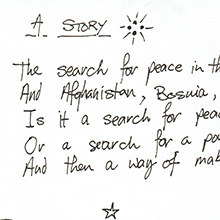 A STORY
The search for peace in th
And Afghanistan, Bosnia,
Is it a search for peac
Or a search for a po
And then a way of mak